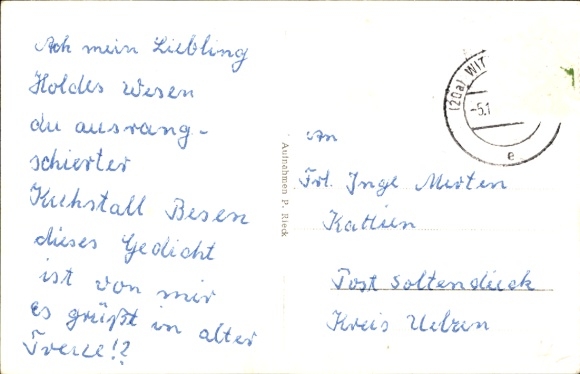 Ach mein Liebling
Holdes Wesen
du ausrang-
schierter
Kuhstall Besen
dieses Gedicht
ist von mir
es grüßt in alter
Treue!?
Aufnahmen P. Rieck
(20a) WIT
-5.1
e
An
Frl. Inge Merten
Kattien
Post Soltendieck
Kreis Uelzen